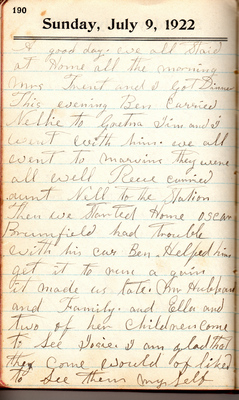 190
Sunday, July 9, 1922
A good day. we all Staid
at Home all the morning
mrs Trent and I Got Dinner
This evening Ben Carried
Nellie to Goetna Jim and I
went with him. we all
went to marvins they were
all well Reece carried
aunt Nell to the Station
Then we Started Home oscar
Brumfield had trouble
with his car Ben. Helped him
get it to run a gain
it made us late. Hubbard
and Family. and Ella and
two of her Children come
to See Josie. I am glad that
they Come would of liked
to See them my Self